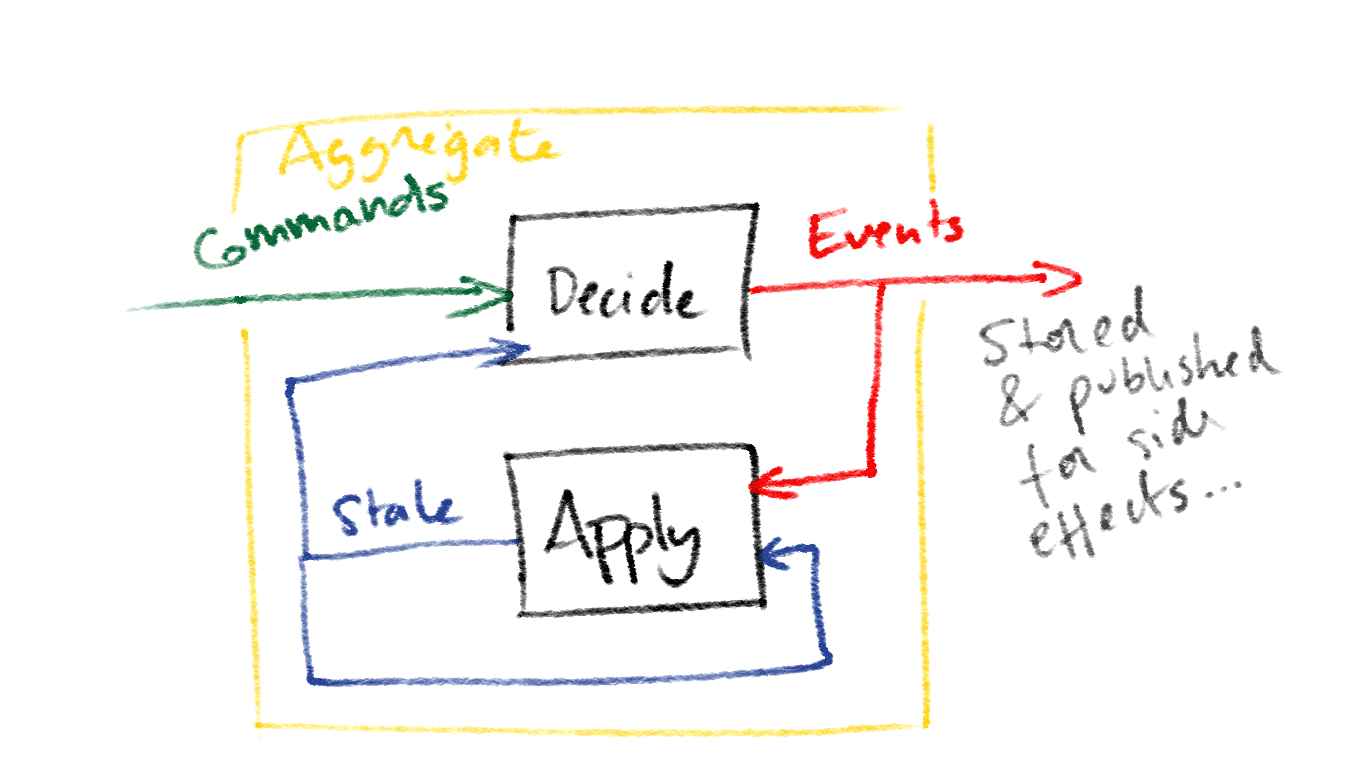 Aggregate
Commands
Decide
Events
Stored
& published
for side
effects...
State
Apply